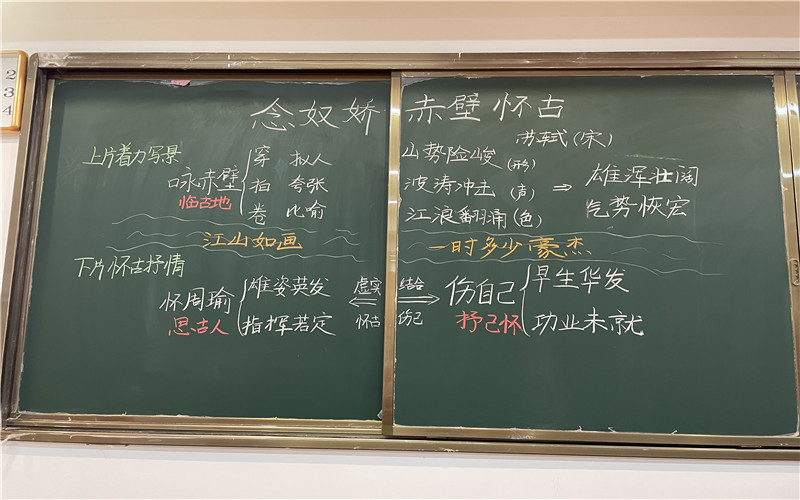 2
3
4
念奴娇 赤壁怀古
苏轼(宋)
上片着力写景
咏赤壁
临古地
穿 拟人
拍 夸张
卷 比喻
山势险峻(形)
波涛冲击(声)
江浪翻涌(色)
⇒
雄浑壮阔
气势恢宏
江山如画 一时多少豪杰
下片怀古抒情
怀周瑜
思古人
雄姿英发
指挥若定
虚实 结合
怀古 伤己
伤自己
抒己怀
早生华发
功业未就